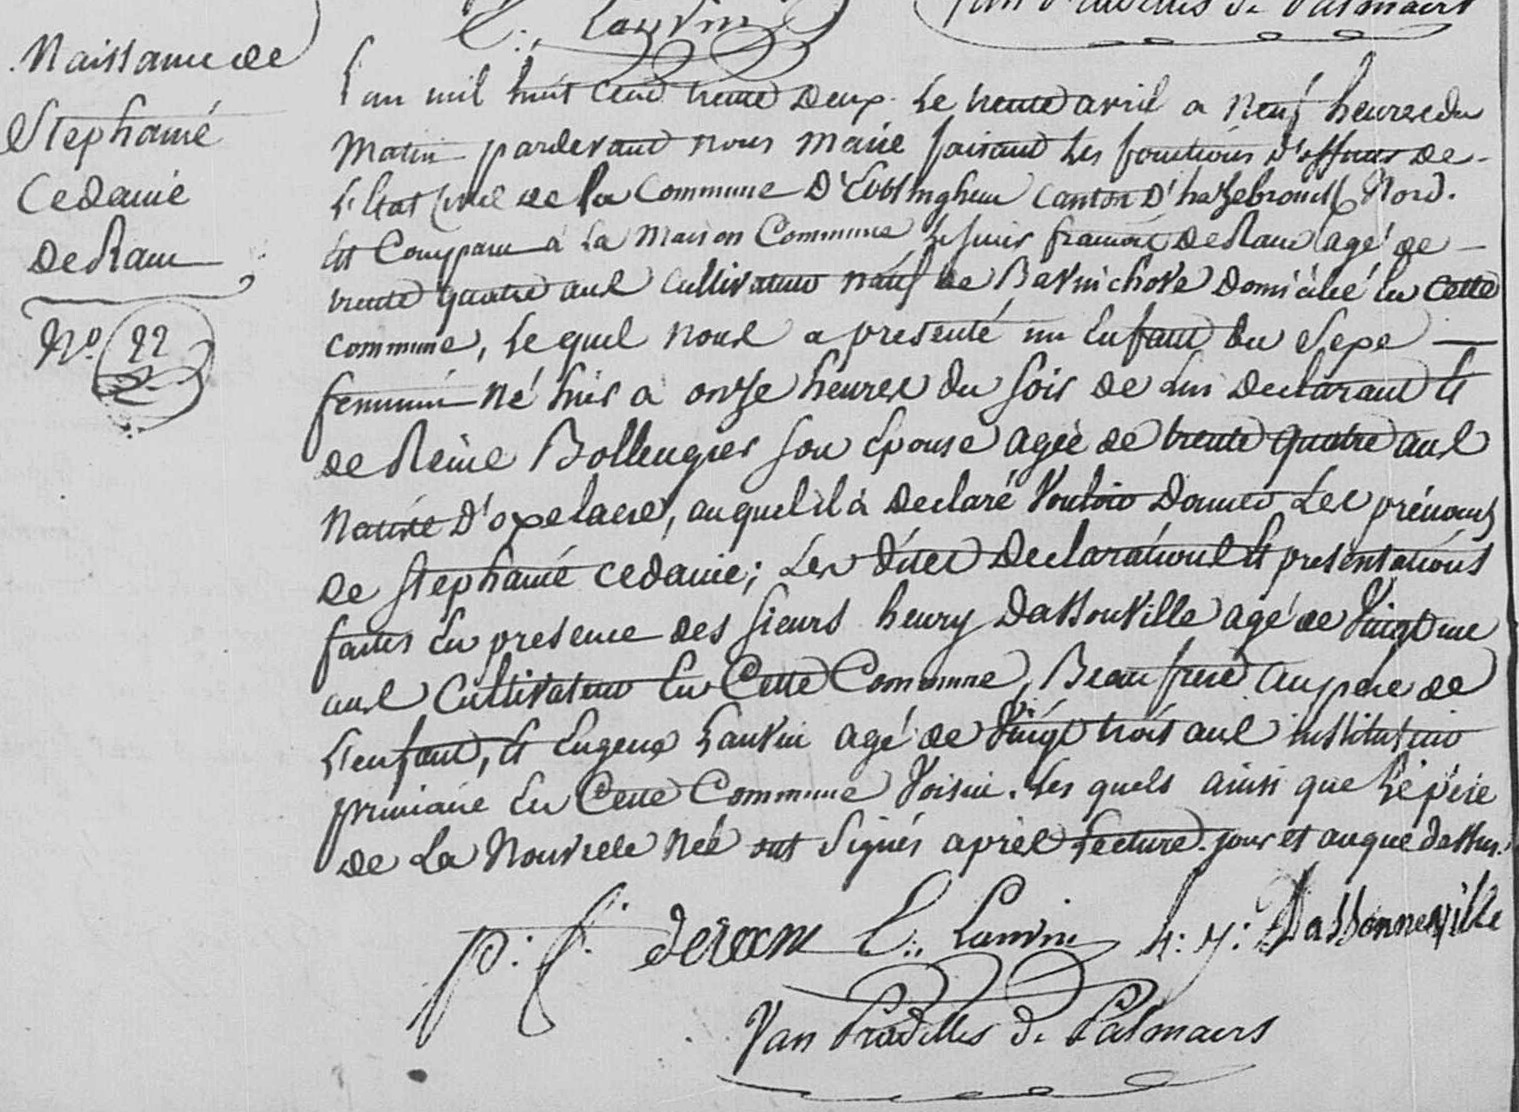 E. Lanvin
Van Pradelles de Palmaers
Naissance de
Stephanie
Cedanie
DeRam
N.º 22
L'an mil huit cent trente deux. Le trente avril a neuf heures du
Matin pardevant nous maire faisant les fonctions d'officier de
L'Etat Civil de la Commune D'Ebblinghem Canton D'hazebrouck Nord.
Est Comparu à La Maison Commune Le sieur françois DeRam agé de
trente quatre ans cultivateur natif de Bavinchove Domicilié en cette
commune, Le quel nous a presenté un Enfant du Sexe
feminin né hier à onze heures du soir de Lui Declarant et
de Reine Bollengier son Epouse agée de trente quatre ans
Native D'oxelaere, auquel il à Declaré Vouloir Donner Les prénoms
de Stephanie Cedanie; Les dites Declarations et presentations
faites En presence des sieurs henry Dassonville agé de Vingt un
ans Cultivateur En Cette Commune, Beaufrere au pere de
L'enfant, et Eugene Lanvin agé de Vingt trois ans instituteur
primaire En Cette Commune Voisin. Les quels ainsi que Le pére
de La Nouvelle Née ont Signés aprés Lecture. jour et an que dessus.
p: f: deram E.. Lanvin h: j: Dassonneville
Van Pradelles de Palmaers